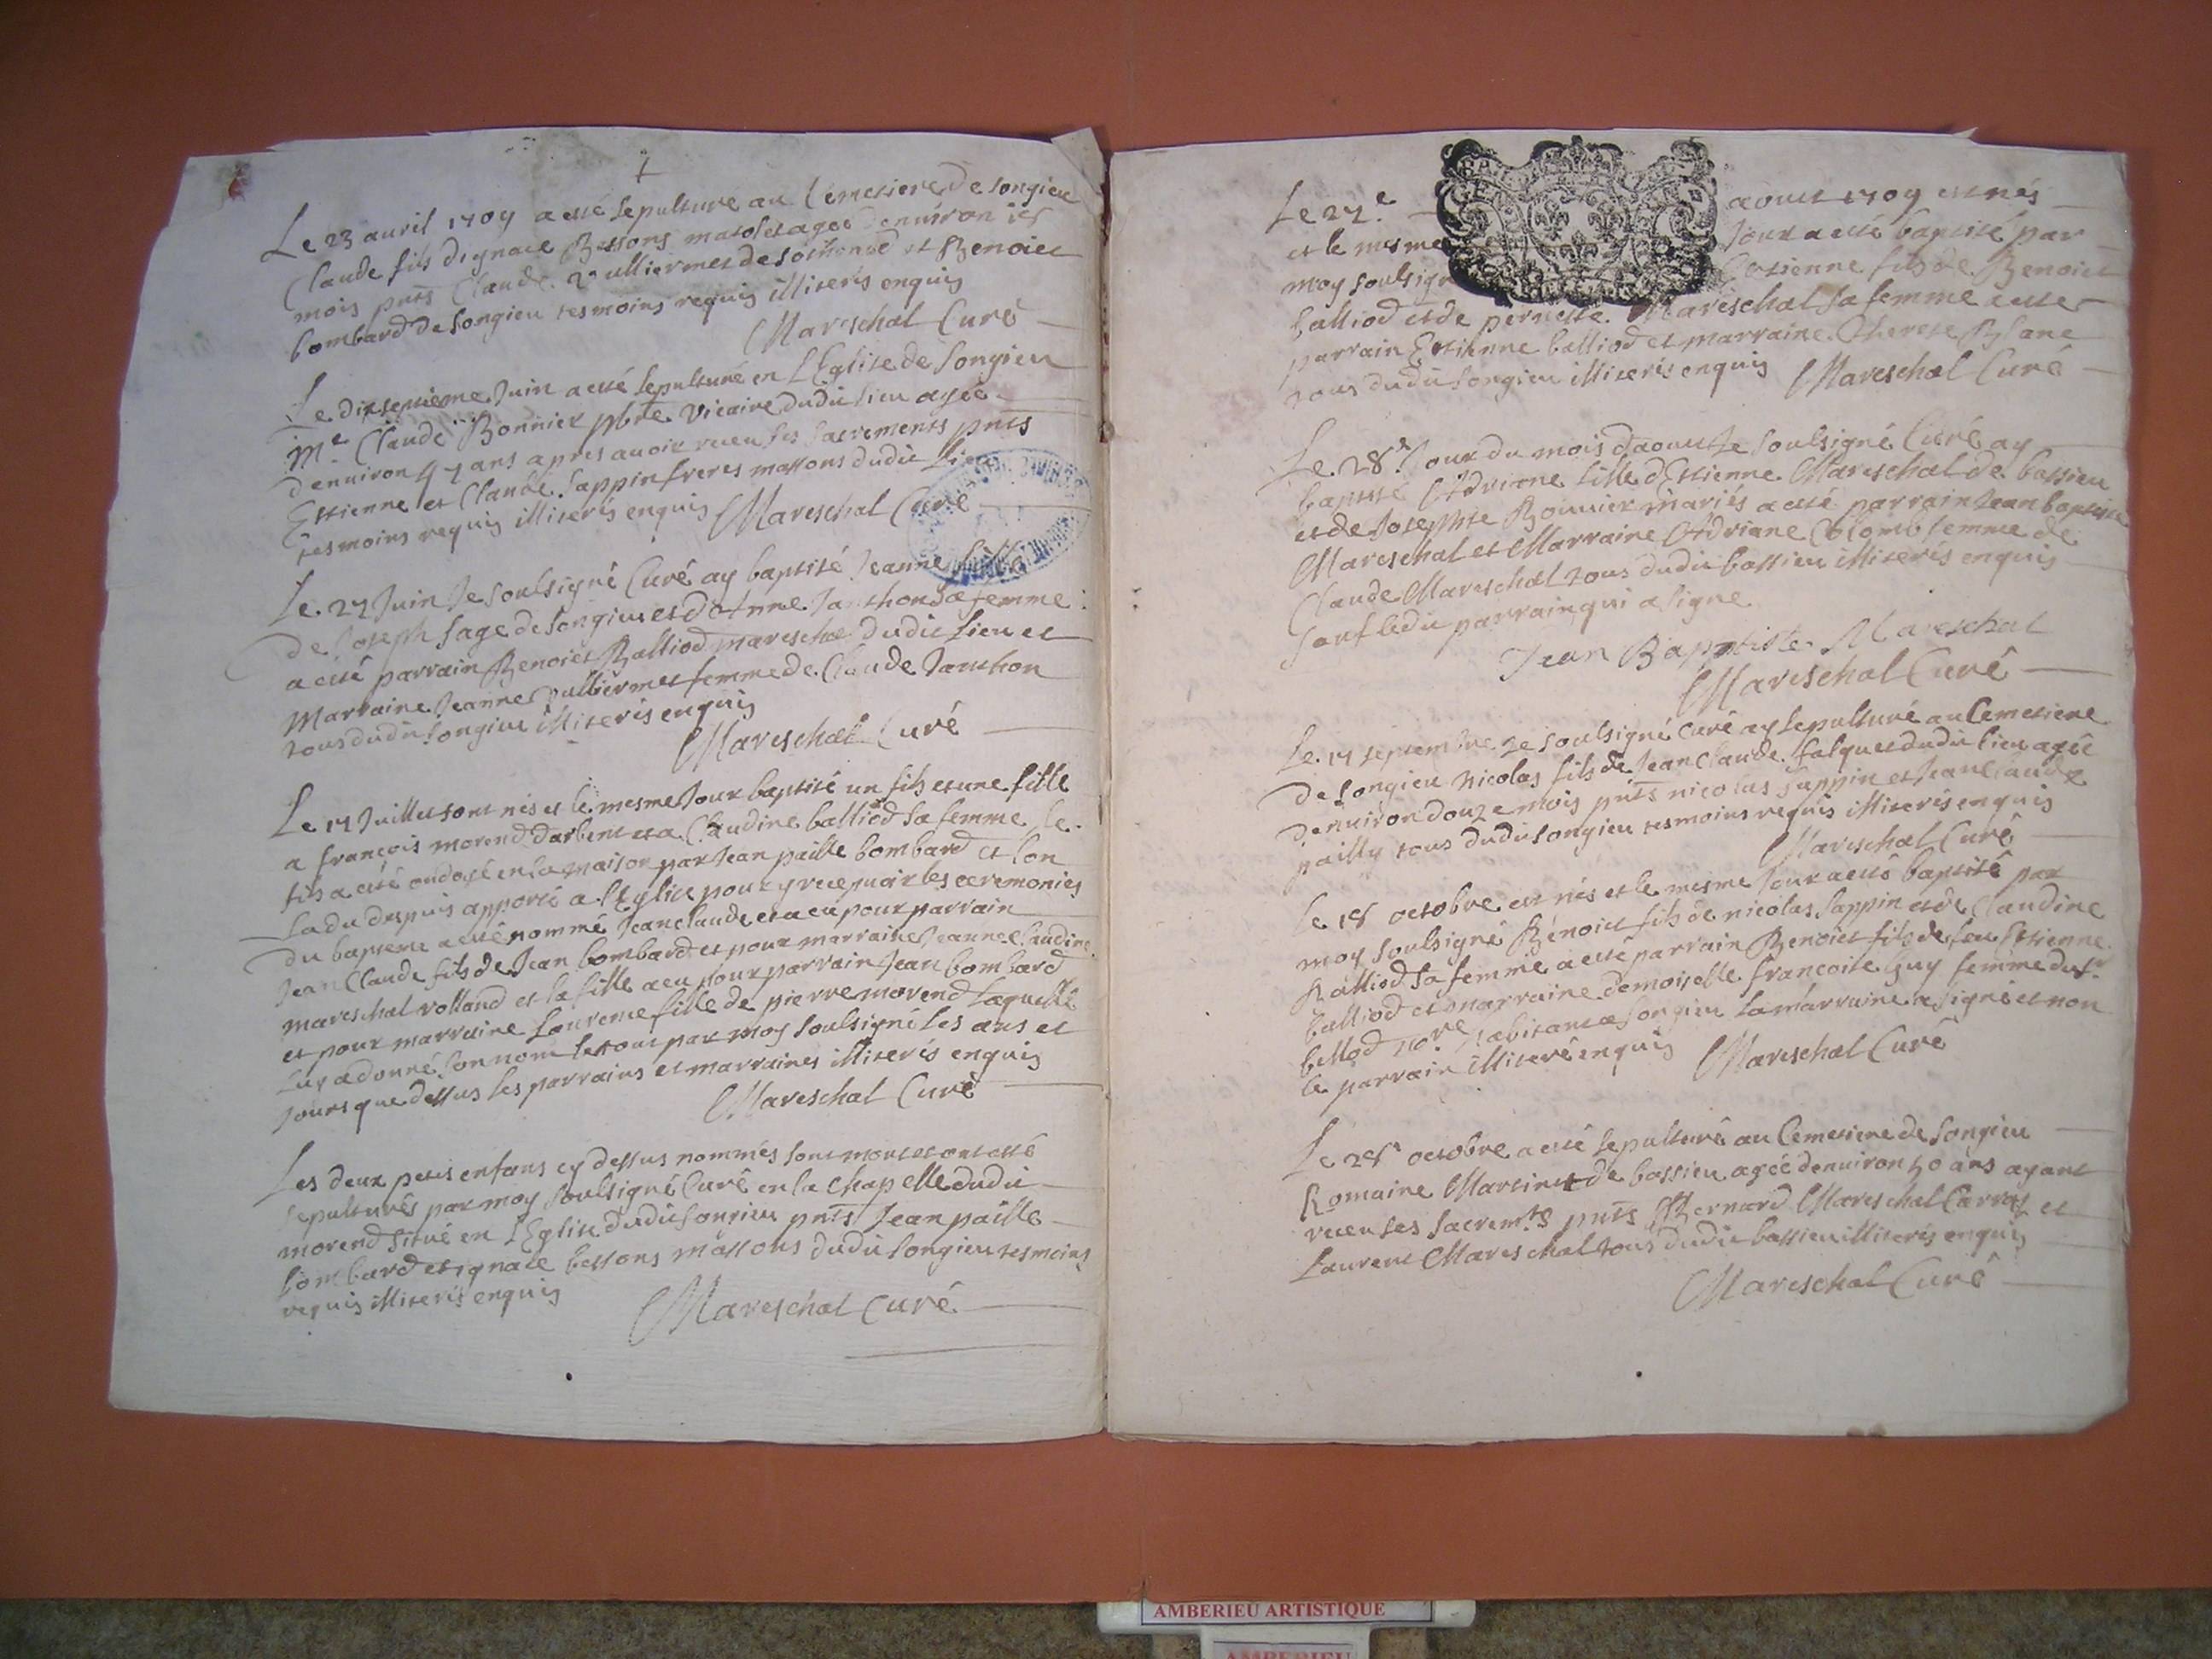 Le 23 avril 1709 a esté sepulturé au Cemetiere de Songieu
Claude fils dignace Bessons masson aagé denviron
mois pnts Claude Vulliermet de Sothonod et Benoict
bombard de Songieu tesmoins requis illiterés enquis
Mareschal Curé
Le dixseptieme Juin a esté sepulturé en LEglise de Songieu
Mre Claude Bonnier pbre vicaire dudit lieu agé
denviron 47 ans apres avoir receu ses sacrements pnts
Estienne et Claude Sappin freres massons dudit lieu
tesmoins requis illiterés enquis Mareschal Curé
Le 27 Juin Je soulsigné Curé ay baptisé Jeanne fille
de Joseph Sage de Songieu et dAnne Janthon sa femme
a esté parrain Benoict Balliod mareschal dudit lieu et
Marraine Jeanne Vulliermet femme de Claude Janthon
tous dudit Songieu illiterés enquis
Mareschal Curé
Le 14 Juillet sont nés et le mesme Jour baptisé un fils et une fille
a françois morend darbent et a Claudine balliod sa femme le
fils a esté ondoyé en la maison par Jean paille bombard et lon
la du despuis apporté a lEglise pour y recepvoir les ceremonies
du bapteme a esté nommé Jean Claude et a eu pour parrain
Jean Claude fils de Jean bombard et pour marraine Jeanne Claudine
mareschal rolland et la fille a eu pour parrain Jean bombard
et pour marraine Laurence fille de pierre morend laquelle
luy a donné son nom le tout par moy soulsigné les ans et
Jours que dessus les parrains et marraines illiterés enquis
Mareschal Curé
Les deux petis enfans cy dessus nommés sont mort et ont esté
sepulturés par moy soulsigné Curé en la chapelle dudit
morend situé en LEglise dudit Songieu pnts Jean paille
bombard et ignace bessons massons dudit Songieu tesmoins
requis illiterés enquis
Mareschal Curé
Le 27e aoust 1709 est nés
et le mesme Jour a esté baptisé par
moy soulsigné Estienne fils de Benoict
balliod et de pernette Mareschal sa femme a esté
parrain Estienne balliod et marraine Therese
tous dudit Songieu illiterés enquis Mareschal Curé
Le 28e Jour du mois daoust Je soulsigné Curé ay
baptisé Adriane fille dEstienne Mareschal de bassieu
et de Josephte Bonnier mariés a esté parrain Jean baptiste
Mareschal et Marraine Adriane Colomb femme de
Claude Mareschal tous dudit bassieu illiterés enquis
sauf ledit parrain qui a signe
Jean Baptiste Mareschal
Mareschal Curé
Le 14 septembre Je soulsigné Curé ay sepulturé au Cemetiere
de Songieu nicolas fils de Jean Claude falquet dudit lieu agée
denviron douze mois pnts nicolas Sappin et Jean Claude
pailly tous dudit Songieu tesmoins requis illiterés enquis
Mareschal Curé
Le 18 octobre est nés et le mesme Jour a esté baptisé par
moy soulsigné Benoict fils de nicolas Sappin et de Claudine
Balliod sa femme a esté parrain Benoict fils de feu Estienne
balliod et marraine demoiselle francoise Guy femme du Sr
bellod nore habitant a Songieu la marraine a signé et non
le parrain illiteré enquis Mareschal Curé
Le 28e octobre a esté sepulturé au Cemetiere de Songieu
Romaine Martinet de bassieu agée denviron 50 ans ayant
receu ses sacremts pnts Bernard Mareschal Carraz et
Laurent Mareschal tous dudit bassieu illiterés enquis
Mareschal Curé
AMBERIEU ARTISTIQUE
AMBERIEU